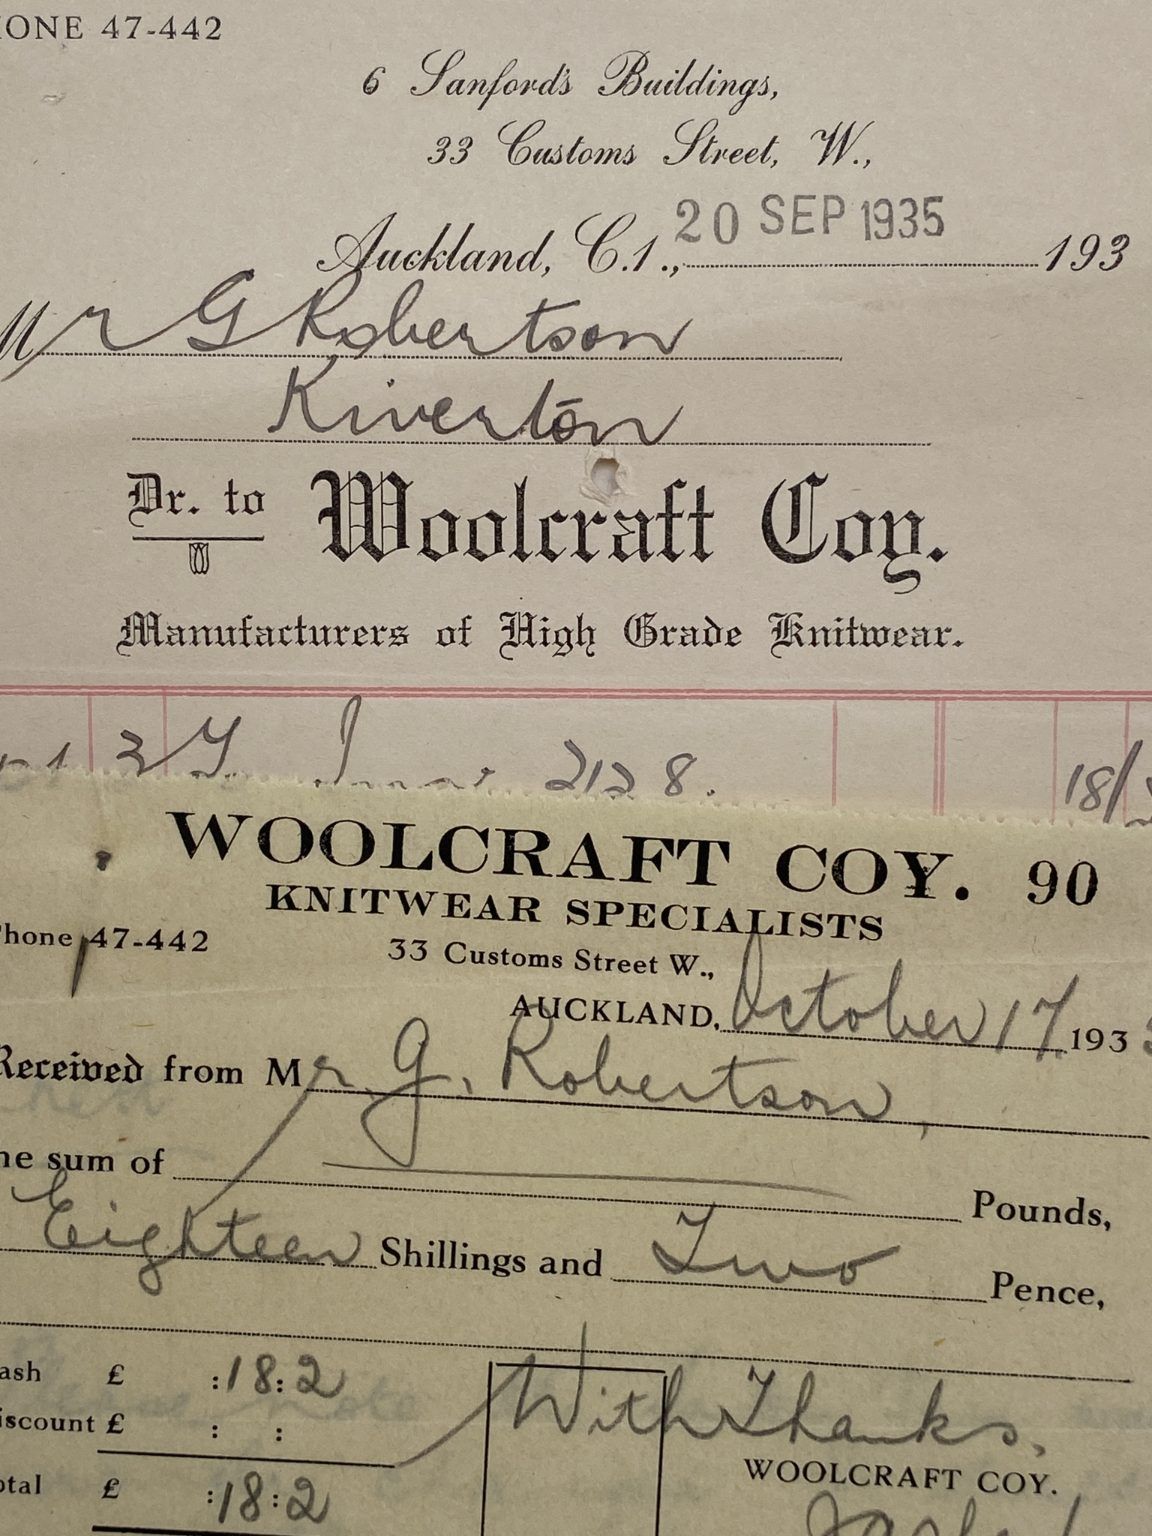 PHONE 47-442
6 Sanford's Buildings,
33 Customs Street, W.,
Auckland, C.1., 20 SEP 1935 193
Mr G Robertson
Riverton
Dr. to Woolcraft Coy.
Manufacturers of High Grade Knitwear.
2128. 18/
WOOLCRAFT COY. 90
KNITWEAR SPECIALISTS
Phone 47-442
33 Customs Street W.,
AUCKLAND, October 17 193
Received from Mr. G. Robertson,
the sum of Pounds,
Eighteen Shillings and Two Pence,
Cash £ :18:2
Discount £ : :
Total £ :18:2
With Thanks.
WOOLCRAFT COY.